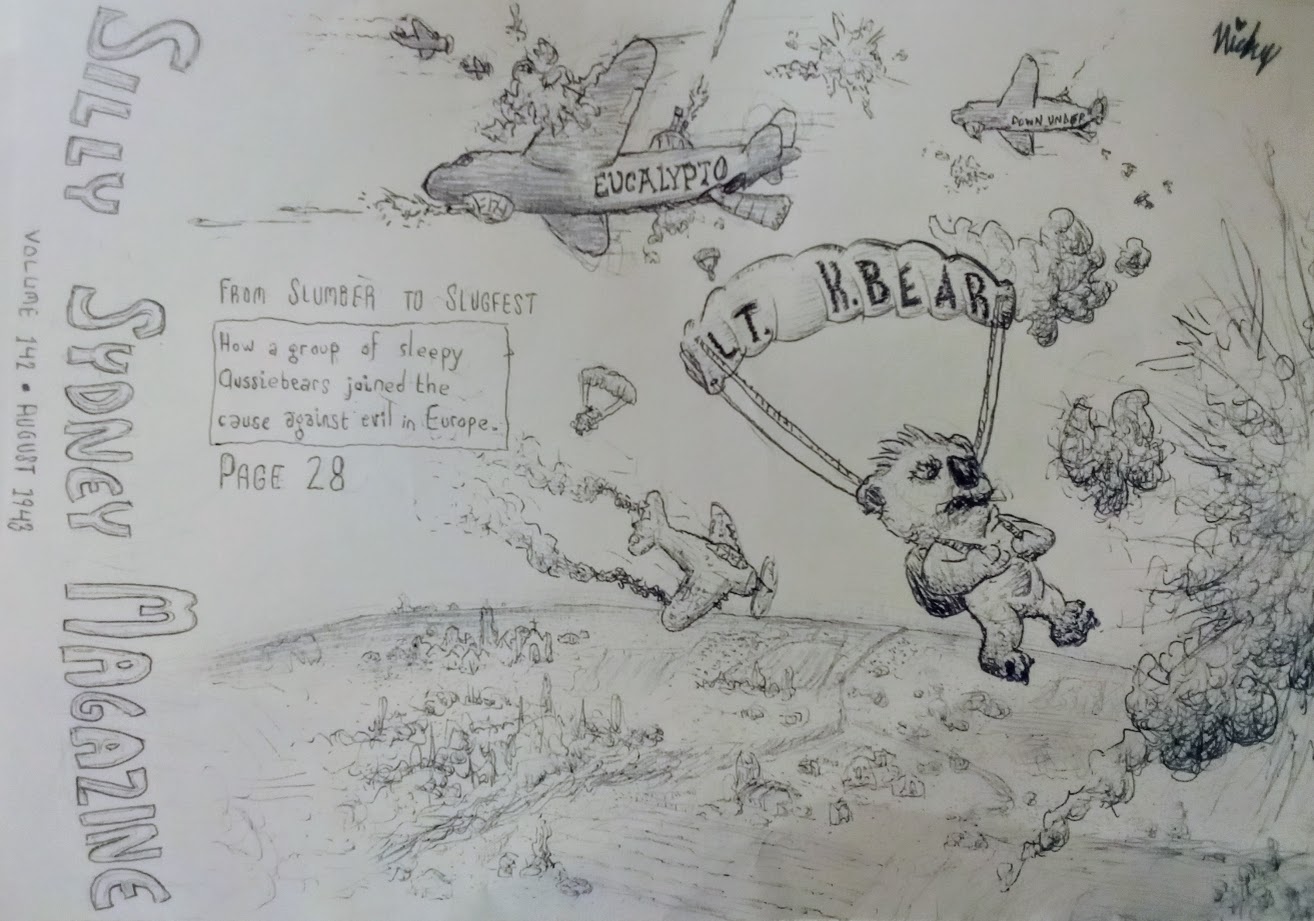 SILLY SYDNEY MAGAZINE
VOLUME 142 • AUGUST 1943
EUCALYPTO
DOWN UNDER
LT. K.BEAR
FROM SLUMBER TO SLUGFEST
How a group of sleepy
Aussiebears joined the
cause against evil in Europe.
PAGE 28
Nicky